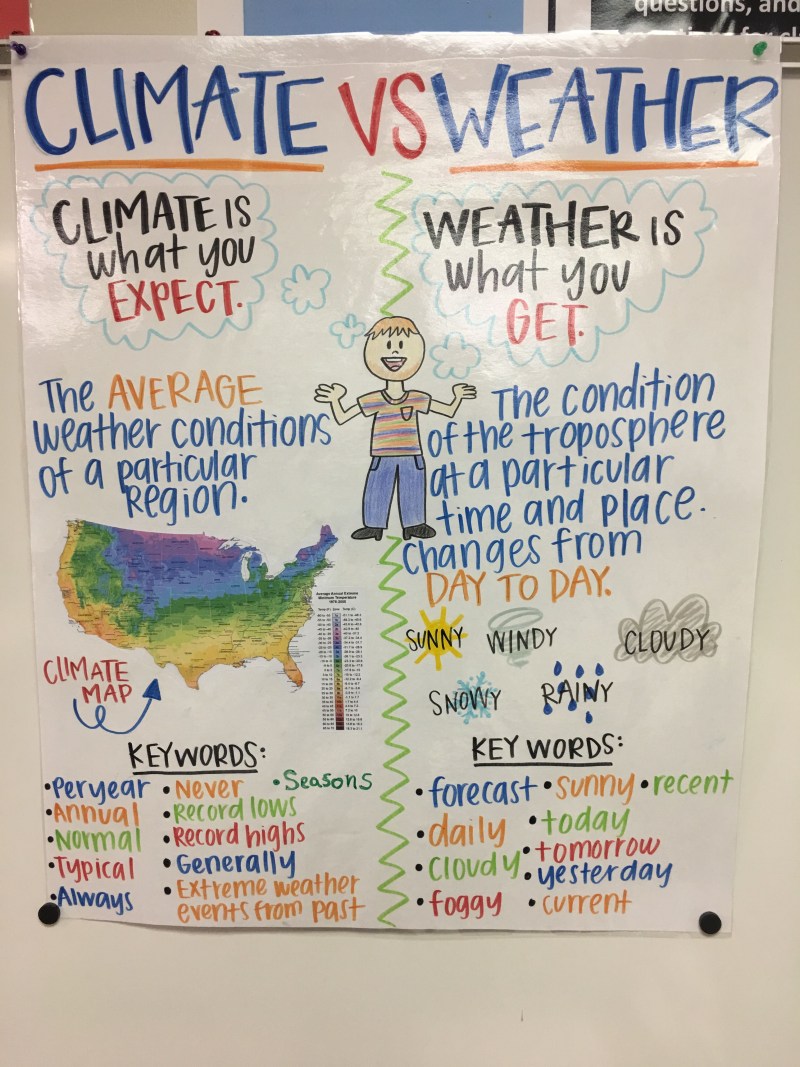 questions, and
CLIMATE VS WEATHER
CLIMATE IS
what you
EXPECT.
The AVERAGE
weather conditions
of a particular
Region.
CLIMATE
MAP
Average Annual Extreme
Minimum Temperature
KEYWORDS:
•Per year
•Annual
•Normal
•Typical
•Always
•Never
•Record lows
•Record highs
•Generally
•Extreme weather
events from past
•Seasons
WEATHER IS
what you
GET.
The condition
of the troposphere
at a particular
time and place.
Changes from
DAY TO DAY.
SUNNY WINDY CLOUDY
SNOWY RAINY
KEY WORDS:
•forecast
•daily
•cloudy
•foggy
•sunny
•today
•tomorrow
•yesterday
•current
•recent